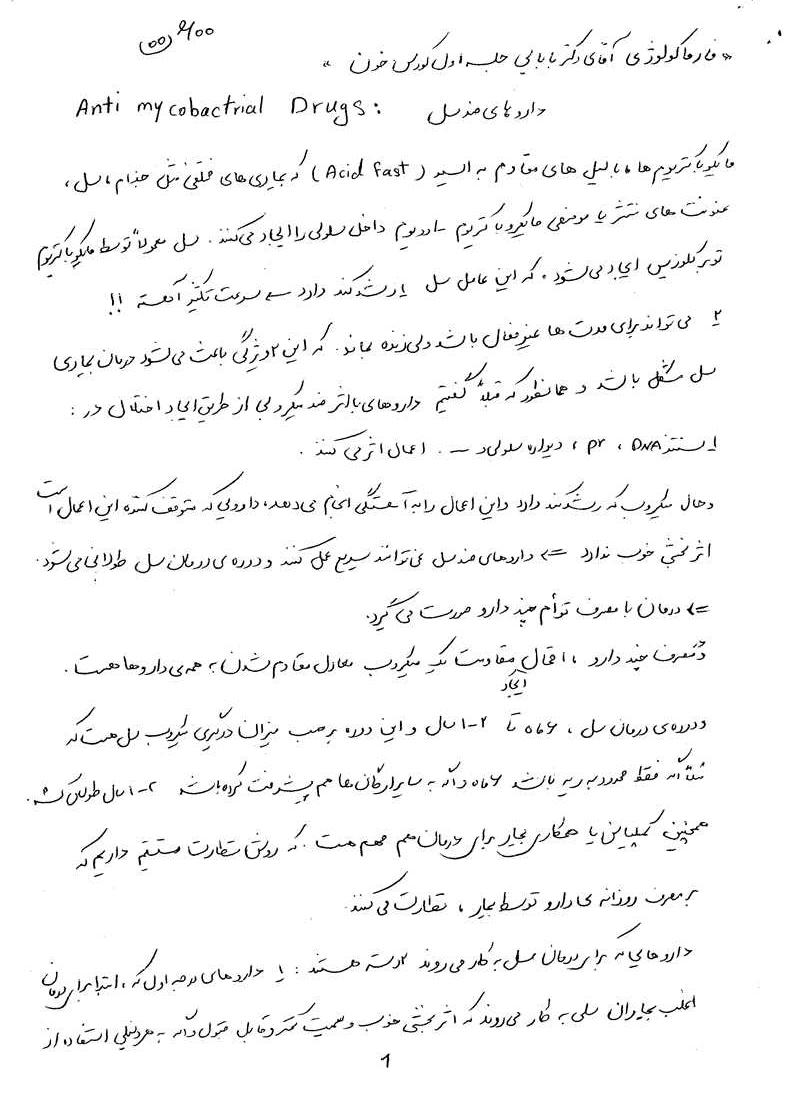 « فارماکولوژی آقای دکتر بابایی جلسه اول کورس خون »
Anti mycobactrial Drugs: داروهای ضد سل
مایکوباکتریوم ها ، باسیل های مقاوم به اسید (Acid Fast) که بیماری های مختلفی مثل جذام ، سل ،
عفونت های منتشر یا موضعی مایکروباکتریوم داخل سلولی را ایجاد می کنند . سل معمولاً توسط مایکوباکتریوم
توبرکلوزیس ایجاد می شود . که این عامل سل ۱، رشد کند دارد سرعت تکثیر آهسته !!
۲، می تواند برای مدت ها غیر فعال باشد ولی زنده بماند . که این ۲ ویژگی باعث می شود درمان بیماری
سل مشکل باشد و همانطور که قبلاً گفتیم داروهای با اثر ضد میکروبی از طریق ایجاد اختلال در :
سنتز DNA ، pr ، دیواره سلولی و ... اعمال اثر می کنند .
و حال میکروب که رشد کند دارد و این اعمال را به آهستگی انجام می دهد، دارویی که متوقف کننده این اعمال است
اثر بخشی خوب ندارد => داروهای ضد سل نمی توانند سریع عمل کنند و دوره ی درمان سل طولانی می شود .
=> درمان با مصرف توأم چند دارو صورت می گیرد.
مصرف چند دارو ، احتمال ایجاد مقاومت یک میکروب معادل مقاوم شدن به همه ی داروها هست .
و دوره ی درمان سل ، ۶ ماه تا ۱-۲ سال و این دوره بر حسب میزان درگیری میکروب سل هست که
مثلاً اگه فقط محدود به ریه باشد ۶ ماه و اگه به سایر ارگان ها هم پیشرفت کرده باشه ۱-۲ سال طول می کشه .
همچنین کمپلیانس یا همکاری بیمار برای درمان هم مهم هست . که روش نظارت مستقیم داریم که
بر مصرف روزانه ی دارو توسط بیمار ، نظارت می کنند .
داروهایی که برای درمان سل به کار می روند ۲ دسته هستند : ۱، داروهای درجه اول که ، ابتدا برای درمان
اغلب بیماران سلی به کار می روند که اثر بخشی خوب و سمیت کمتر و قابل قبول و اگه به هر دلیلی استفاده از
1